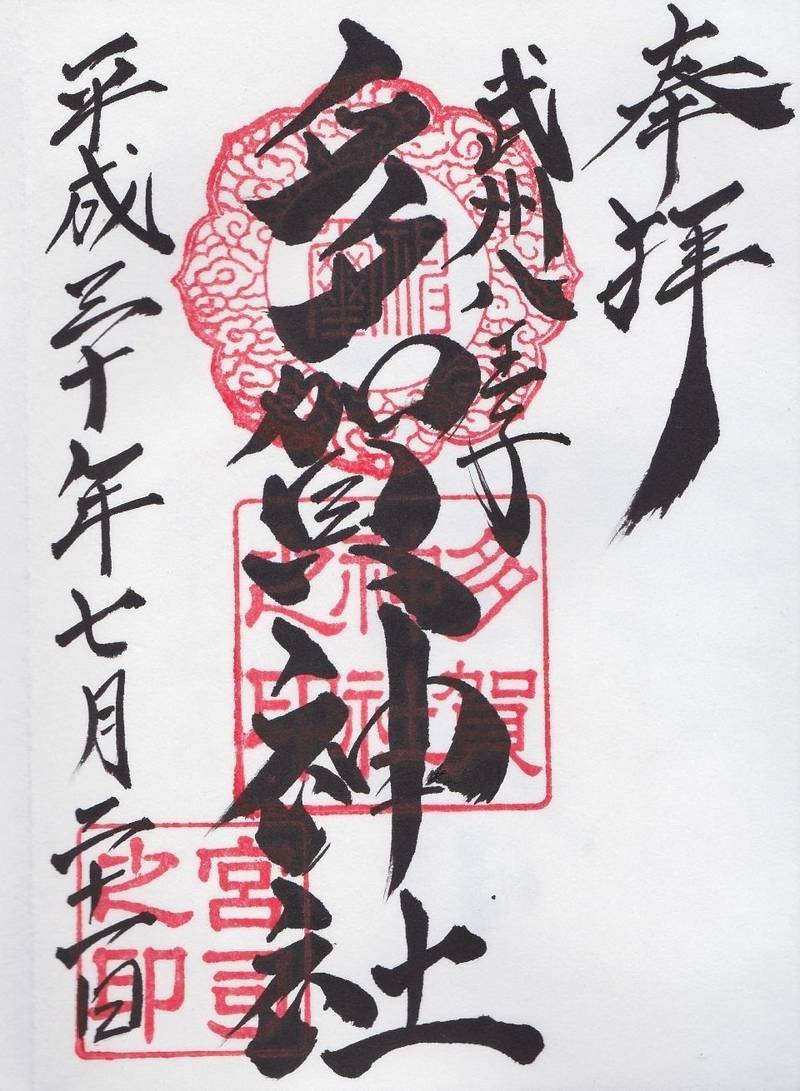 奉拝
武州八王子
多賀神社
平成三十年七月二十一日
多賀
神社
之印
宮司
之印